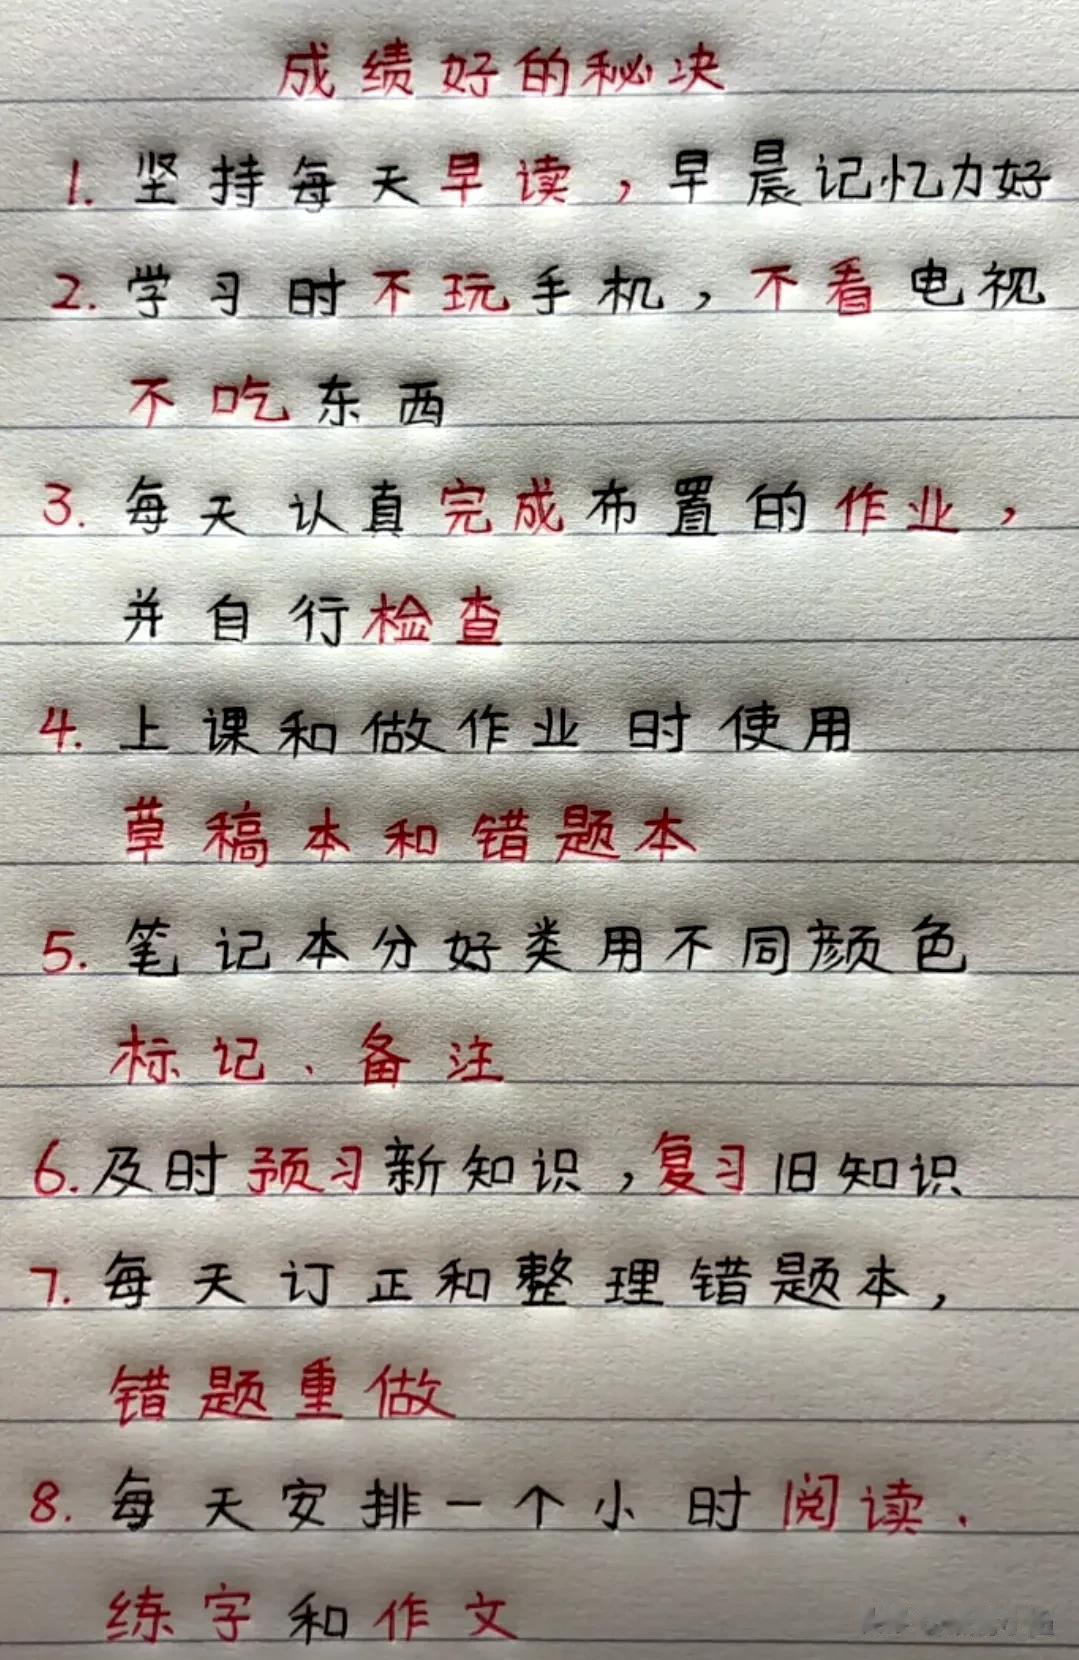 成绩好的秘决
1. 坚持每天早读，早晨记忆力好
2. 学习时不玩手机，不看电视
不吃东西
3. 每天认真完成布置的作业，
并自行检查
4. 上课和做作业时使用
草稿本和错题本
5. 笔记本分好类用不同颜色
标记、备注
6. 及时预习新知识，复习旧知识
7. 每天订正和整理错题本，
错题重做
8. 每天安排一个小时阅读、
练字和作文